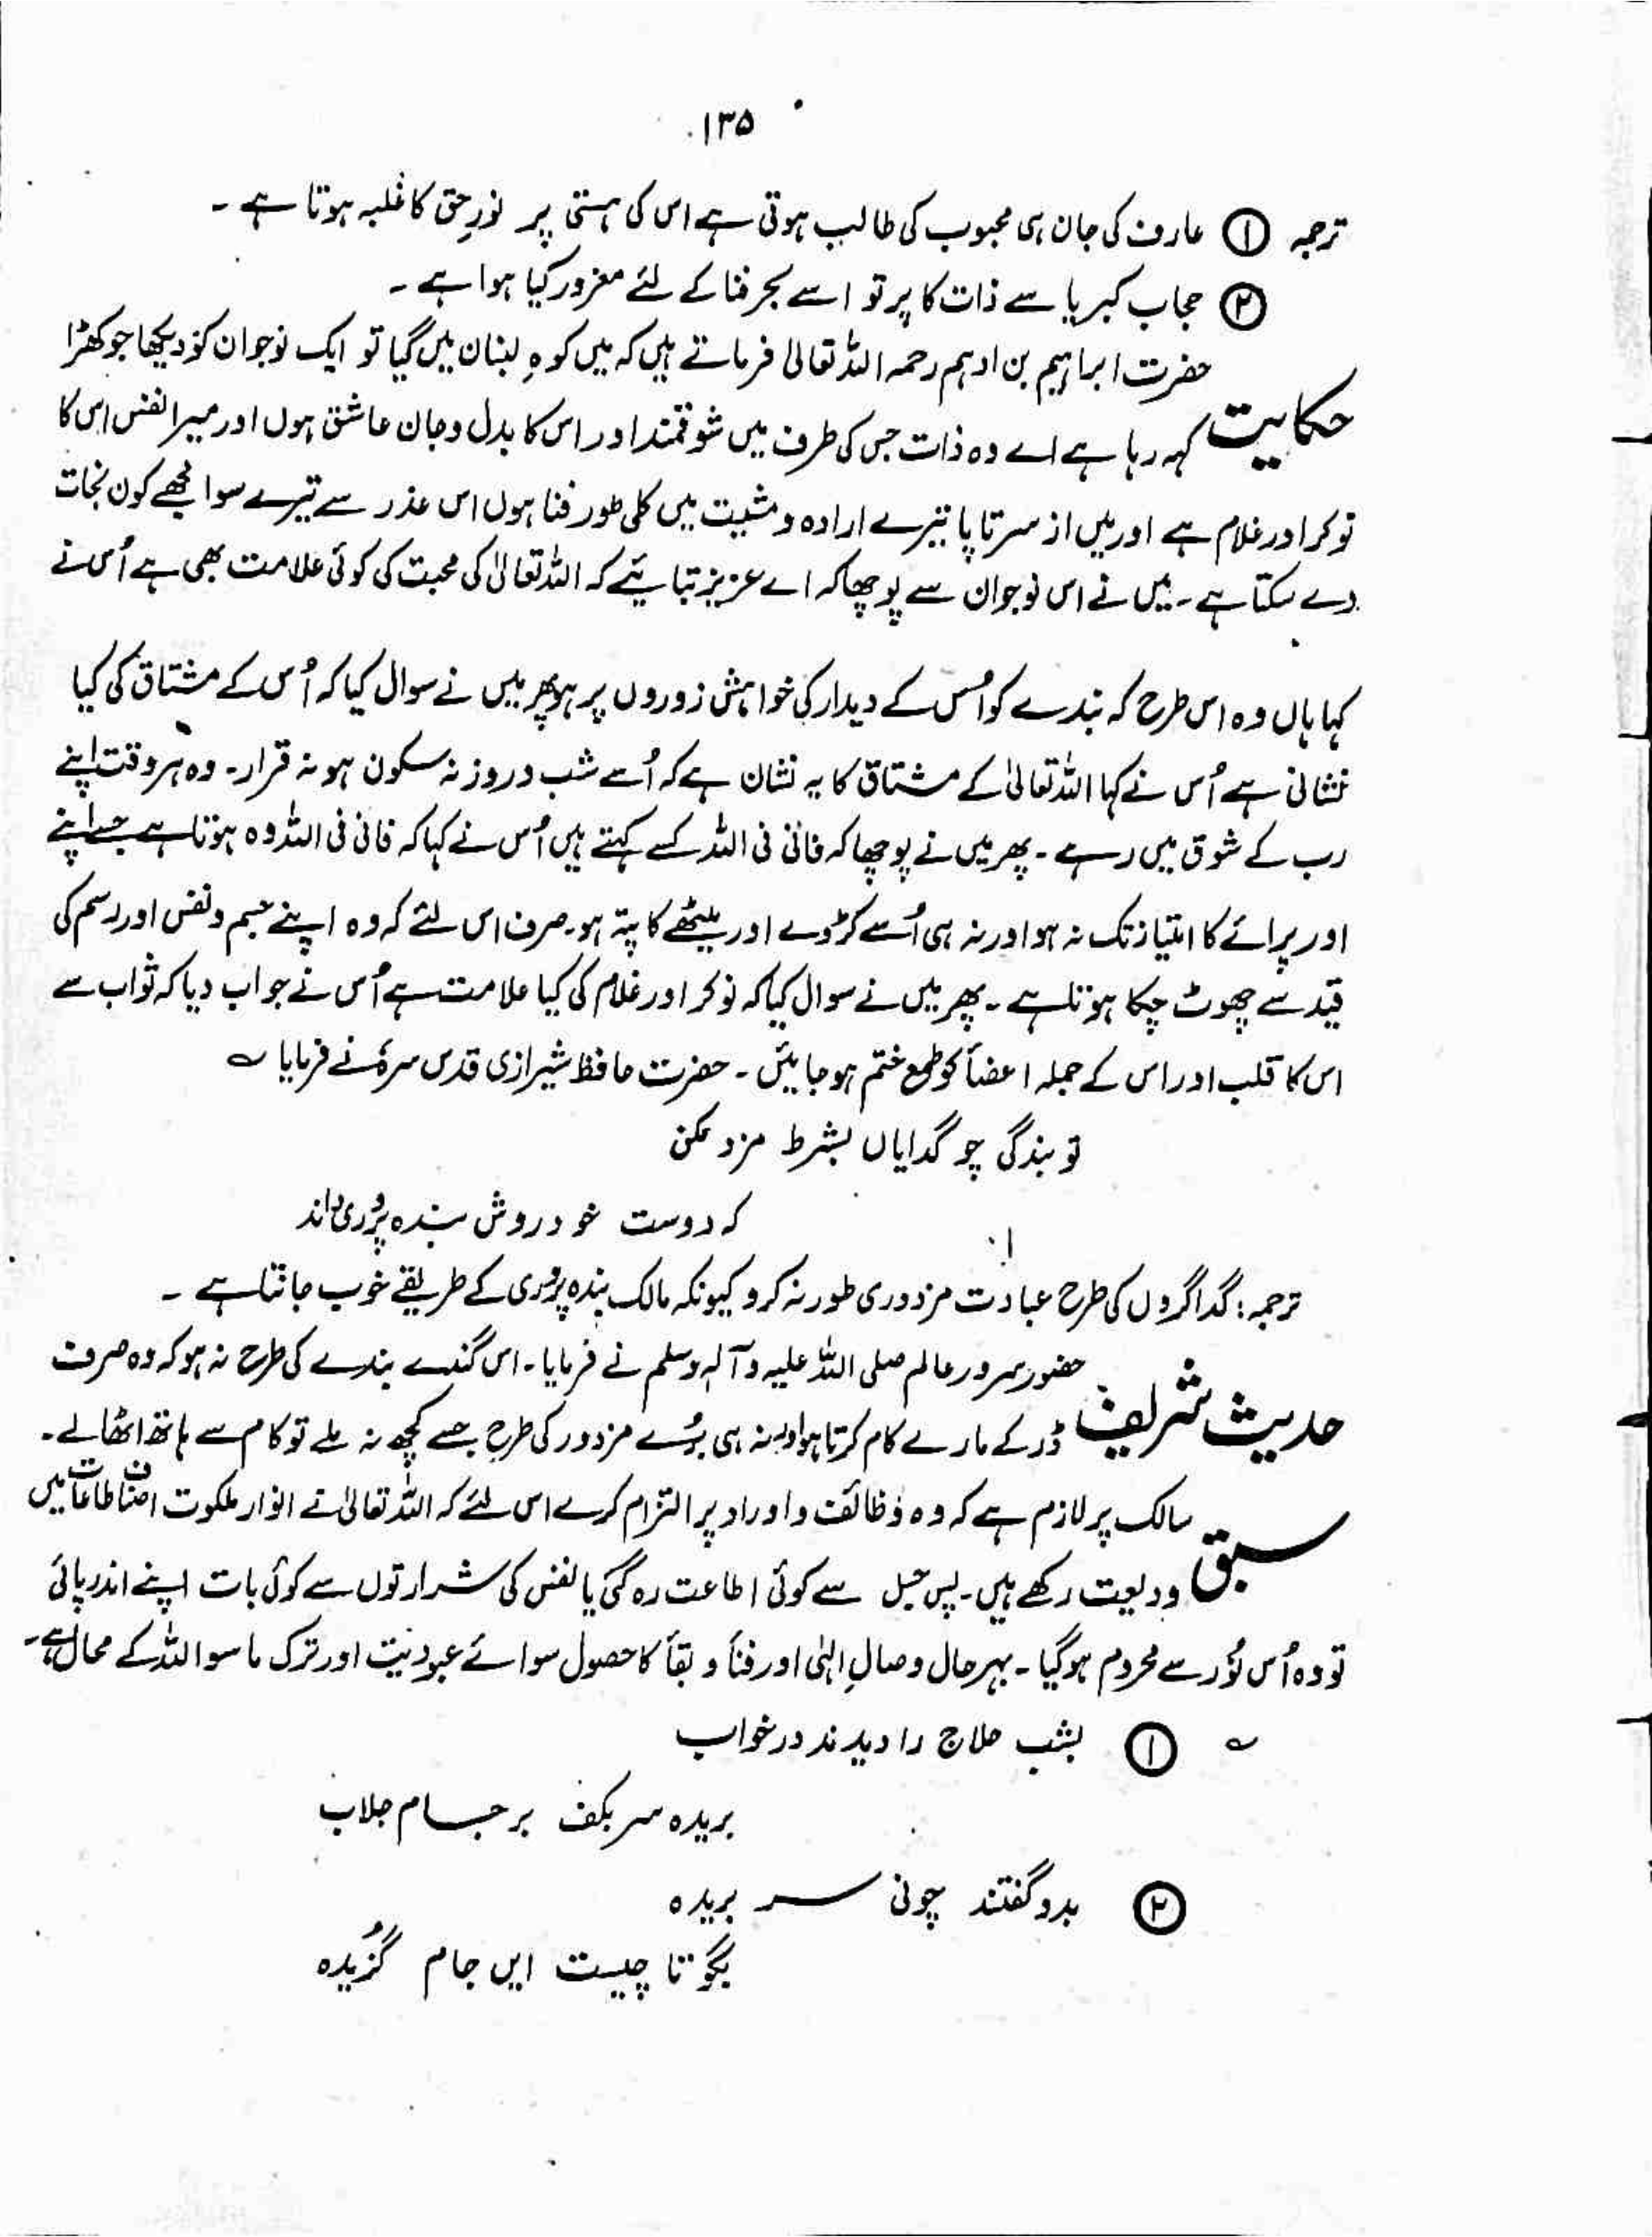 ۱۳۵
ترجمہ ① عارف کی جان ہی محبوب کی طالب ہوتی ہے اس کی ہستی پر نورِ حق کا غلبہ ہوتا ہے ۔
② حجاب کبریا سے ذات کا پرتو اسے بحر فنا کے لئے مغرور کیا ہوا ہے ۔
حکایت حضرت ابراہیم بن ادہم رحمہ اللہ تعالیٰ فرماتے ہیں کہ میں کوہِ لبنان میں گیا تو ایک نوجوان کو دیکھا جو کھڑا
کہہ رہا ہے اے وہ ذات جس کی طرف میں شوقمند اور اس کا بدل و جان عاشق ہوں اور میرا نفس اس کا
نوکر اور غلام ہے اور میں از سر تا پا تیرے ارادہ و مشیت میں کلی طور فنا ہوں اس عذر سے تیرے سوا مجھے کون نجات
دے سکتا ہے ۔ میں نے اس نوجوان سے پوچھا کہ اے عزیز بتائیے کہ اللہ تعالیٰ کی محبت کی کوئی علامت بھی ہے اُس نے
کہا ہاں وہ اس طرح کہ بندے کو اُس کے دیدار کی خواہش زوروں پر ہو پھر میں نے سوال کیا کہ اُس کے مشتاق کی کیا
نشانی ہے اُس نے کہا اللہ تعالیٰ کے مشتاق کا یہ نشان ہے کہ اُسے شب و روز نہ سکون ہو نہ قرار ۔ وہ ہر وقت اپنے
رب کے شوق میں رہے ۔ پھر میں نے پوچھا کہ فانی فی اللہ کسے کہتے ہیں اُس نے کہا کہ فانی فی اللہ وہ ہوتا ہے جسے اپنے
اور پرائے کا امتیاز تک نہ ہو اور نہ ہی اُسے کڑوے اور میٹھے کا پتہ ہو ۔ صرف اس لئے کہ وہ اپنے جسم و نفس اور رسم کی
قید سے چھوٹ چکا ہوتا ہے ۔ پھر میں نے سوال کیا کہ نوکر اور غلام کی کیا علامت ہے اُس نے جواب دیا کہ ثواب سے
اس کا قلب اور اس کے جملہ اعضأ کو طمع ختم ہو جائیں ۔ حضرت حافظ شیرازی قدس سرہٗ نے فرمایا ؎
تو بندگی چو گدایاں بشرط مزد مکن
کہ دوست خود روش بندہ پروری داند
ترجمہ : گداگروں کی طرح عبادت مزدوری طور نہ کرو کیونکہ مالک بندہ پروری کے طریقے خوب جانتا ہے ۔
حدیث شریف حضور سرور عالم صلی اللہ علیہ وآلہ وسلم نے فرمایا ۔ اس گندے بندے کی طرح نہ ہو کہ وہ صرف
ڈر کے مارے کام کرتا ہو اور نہ ہی بُرے مزدور کی طرح جسے کچھ نہ ملے تو کام سے ہاتھ اٹھا لے ۔
سبق سالک پر لازم ہے کہ وہ وظائف و اوراد پر التزام کرے اس لئے کہ اللہ تعالیٰ نے انوار ملکوت اصناف طاعات میں
ودیعت رکھے ہیں ۔ پس جس سے کوئی اطاعت رہ گئی یا نفس کی شرارتوں سے کوئی بات اپنے اندر پائی
تو وہ اُس نُور سے محروم ہوگیا ۔ بہرحال وصالِ الٰہی اور فنأ و بقأ کا حصول سوائے عبودیت اور ترک ما سوا اللہ کے محال ہے ۔
؎ ① بشب حلاج را دیدند در خواب
بریدہ سر بکف بر جام جلاب
② بدو گفتند چونی سر بریدہ
بگو تا چیست ایں جام گُزیدہ